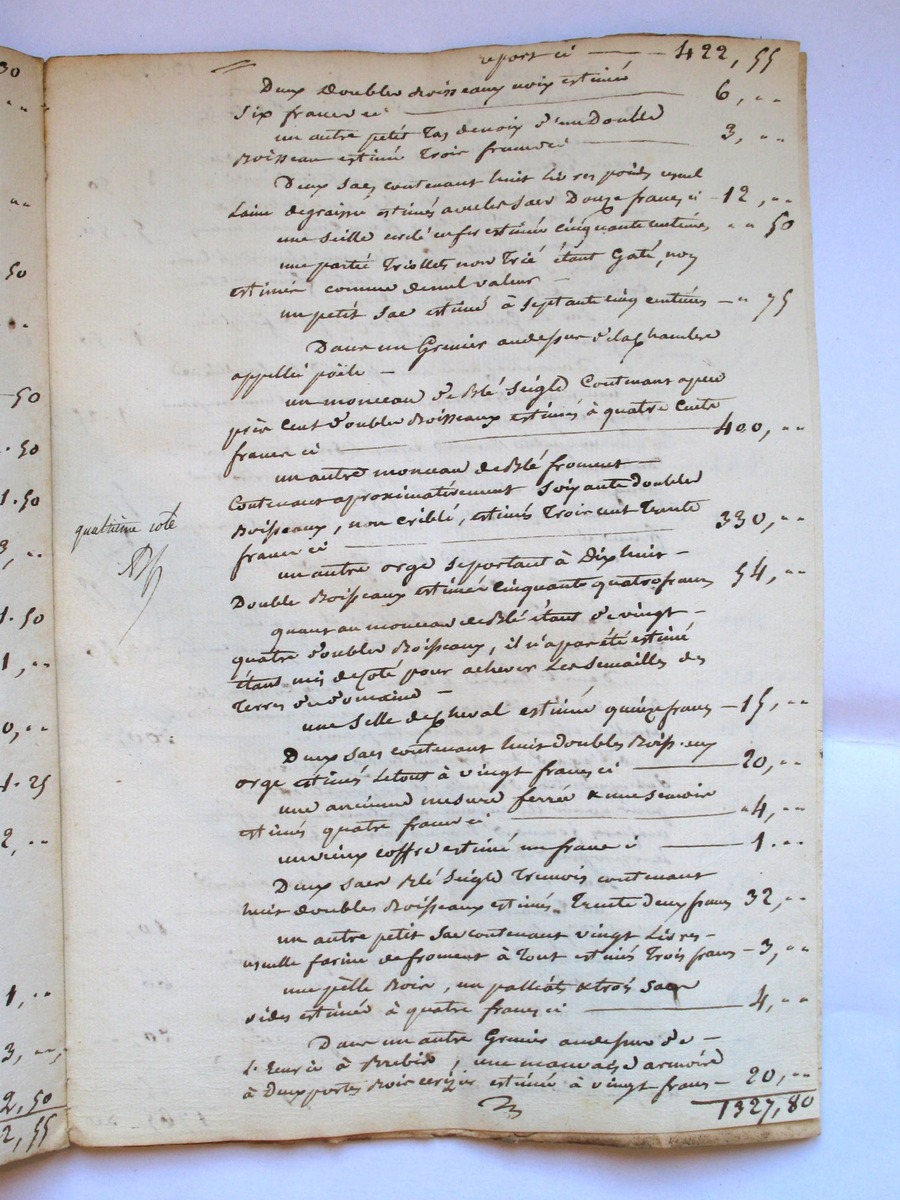 30
50
50
50
1.50
3,
1.50
1,
0,
1.25
2,
1,
3,
2,50
2,55
quatrième cote
report ci — 422,55
Deux doubles Boisseaux noix estimés
Six francs ci — 6, "
un autre petit Tas de noix d'un Double
Boisseau estimé Trois francs ci — 3, "
Deux sacs contenant huit Livres poids usuel
Laine degraissé estimés avec les sacs Douze francs ci — 12, "
une seille cerclé en fer estimée cinquante centimes " " 50
une partie Triollets non Trié étant Gaté, non
estimée comme de nul valeur —
un petit sac estimé à Septante cinq centimes — " 75
Dans un Grenier au dessus de la Chambre
appellée pöële —
un monceau de Blé Seigle Contenant apeu
près Cent doubles Boisseaux estimés à quatre Cents
francs ci — 400, "
un autre monceau de Blé froment —
Contenant aproximativement Soixante doubles
Boisseaux, non criblé, estimés Trois cent Trente
francs ci — 330, "
un autre orge se portant à Dix huit —
Double Boisseaux estimée Cinquante quatre francs 54, "
quant au monceau de Blé étant de vingt —
quatre doubles Boisseaux, il n'a pas été estimé
étant mis de Coté pour achever Les Semailles des
Terres du Domaine —
une Selle de Cheval estimée quinze francs — 15, "
Deux sacs contenant huit doubles Boisseaux
orge estimés Le tout à vingt francs ci — 20, "
une ancienne mesure ferrée &
estimés quatre francs ci — " 4, "
un vieux coffre estimé un franc ci — 1 "
Deux sacs Blé Seigle Tremois contenant
huit doubles Boisseaux estimés Trente deux francs 32, "
un autre petit sac contenant vingt Livres —
usuelle farine de froment à Tout estimés Trois francs — 3, "
une pèlle Bois, un & trois sacs
vides estimée à quatre francs ci — 4, "
Dans un autre Grenier au dessus de —
L'Ecurie à Brebis, une mauvaise armoire
à Deux portes Bois cerizier estimée à vingt francs — 20, "
1327,80